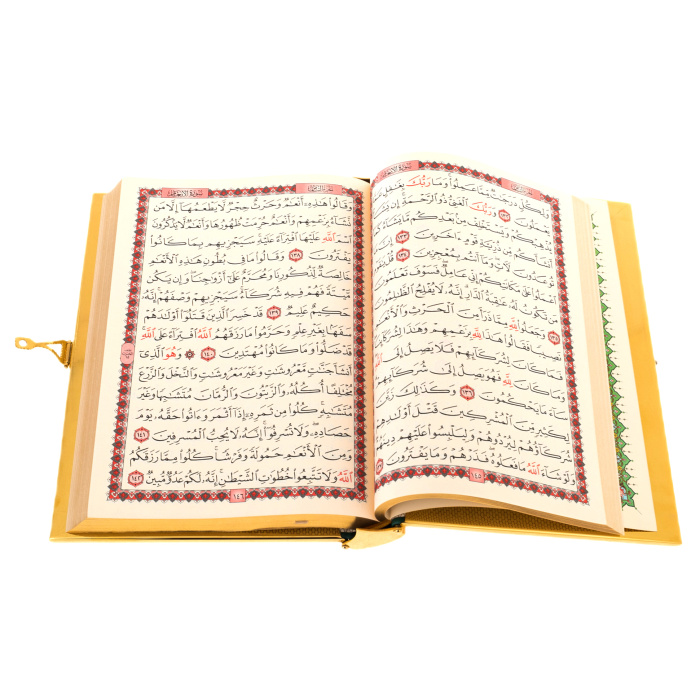 سُورَةُ الأَنْعَامِ
وَلِكُلٍّ دَرَجَٰتٌ مِّمَّا عَمِلُوا۟ وَمَا رَبُّكَ بِغَٰفِلٍ
وَرَبُّكَ ٱلْغَنِىُّ ذُو ٱلرَّحْمَةِ إِن
يُذْهِبْكُمْ وَيَسْتَخْلِفْ مِنۢ بَعْدِكُم مَّا يَشَآءُ
أَنشَأَكُم مِّن ذُرِّيَّةِ قَوْمٍ ءَاخَرِينَ ١٣٣
تُوعَدُونَ لَءَاتٍ وَمَآ أَنتُم بِمُعْجِزِينَ ١٣٤
ٱعْمَلُوا۟ عَلَىٰ مَكَانَتِكُمْ إِنِّى عَامِلٌ فَسَوْفَ تَعْلَمُونَ
مَن تَكُونُ لَهُۥ عَٰقِبَةُ ٱلدَّارِ إِنَّهُۥ لَا يُفْلِحُ ٱلظَّٰلِمُونَ
١٣٥ وَجَعَلُوا۟ لِلَّهِ مِمَّا ذَرَأَ مِنَ ٱلْحَرْثِ وَٱلْأَنْعَٰمِ
نَصِيبًا فَقَالُوا۟ هَٰذَا لِلَّهِ بِزَعْمِهِمْ وَهَٰذَا لِشُرَكَآئِنَا
فَمَا كَانَ لِشُرَكَآئِهِمْ فَلَا يَصِلُ إِلَى ٱللَّهِ
وَمَا كَانَ لِلَّهِ فَهُوَ يَصِلُ إِلَىٰ شُرَكَآئِهِمْ
سَآءَ مَا يَحْكُمُونَ ١٣٦ وَكَذَٰلِكَ زَيَّنَ
لِكَثِيرٍ مِّنَ ٱلْمُشْرِكِينَ قَتْلَ أَوْلَٰدِهِمْ
شُرَكَآؤُهُمْ لِيُرْدُوهُمْ وَلِيَلْبِسُوا۟ عَلَيْهِمْ دِينَهُمْ
وَلَوْ شَآءَ ٱللَّهُ مَا فَعَلُوهُ فَذَرْهُمْ وَمَا يَفْتَرُونَ
١٤٥
سُورَةُ الأَنْعَامِ
وَقَالُوا۟ هَٰذِهِۦٓ أَنْعَٰمٌ وَحَرْثٌ حِجْرٌ لَّا يَطْعَمُهَآ إِلَّا مَن
نَّشَآءُ بِزَعْمِهِمْ وَأَنْعَٰمٌ حُرِّمَتْ ظُهُورُهَا وَأَنْعَٰمٌ لَّا يَذْكُرُونَ
ٱسْمَ ٱللَّهِ عَلَيْهَا ٱفْتِرَآءً عَلَيْهِ سَيَجْزِيهِم بِمَا كَانُوا۟
يَفْتَرُونَ ١٣٨ وَقَالُوا۟ مَا فِى بُطُونِ هَٰذِهِ ٱلْأَنْعَٰمِ
خَالِصَةٌ لِّذُكُورِنَا وَمُحَرَّمٌ عَلَىٰٓ أَزْوَٰجِنَا وَإِن يَكُن
مَّيْتَةً فَهُمْ فِيهِ شُرَكَآءُ سَيَجْزِيهِمْ وَصْفَهُمْ إِنَّهُۥ
حَكِيمٌ عَلِيمٌ ١٣٩ قَدْ خَسِرَ ٱلَّذِينَ قَتَلُوٓا۟ أَوْلَٰدَهُمْ
سَفَهًۢا بِغَيْرِ عِلْمٍ وَحَرَّمُوا۟ مَا رَزَقَهُمُ ٱللَّهُ ٱفْتِرَآءً عَلَى ٱللَّهِ
قَدْ ضَلُّوا۟ وَمَا كَانُوا۟ مُهْتَدِينَ ١٤٠ ۞ وَهُوَ ٱلَّذِىٓ
أَنشَأَ جَنَّٰتٍ مَّعْرُوشَٰتٍ وَغَيْرَ مَعْرُوشَٰتٍ وَٱلنَّخْلَ وَٱلزَّرْعَ
مُخْتَلِفًا أُكُلُهُۥ وَٱلزَّيْتُونَ وَٱلرُّمَّانَ مُتَشَٰبِهًا وَغَيْرَ
مُتَشَٰبِهٍ كُلُوا۟ مِن ثَمَرِهِۦٓ إِذَآ أَثْمَرَ وَءَاتُوا۟ حَقَّهُۥ يَوْمَ
حَصَادِهِۦ وَلَا تُسْرِفُوٓا۟ إِنَّهُۥ لَا يُحِبُّ ٱلْمُسْرِفِينَ ١٤١
وَمِنَ ٱلْأَنْعَٰمِ حَمُولَةً وَفَرْشًا كُلُوا۟ مِمَّا رَزَقَكُمُ
ٱللَّهُ وَلَا تَتَّبِعُوا۟ خُطُوَٰتِ ٱلشَّيْطَٰنِ إِنَّهُۥ لَكُمْ عَدُوٌّ مُّبِينٌ ١٤٢
١٤٦